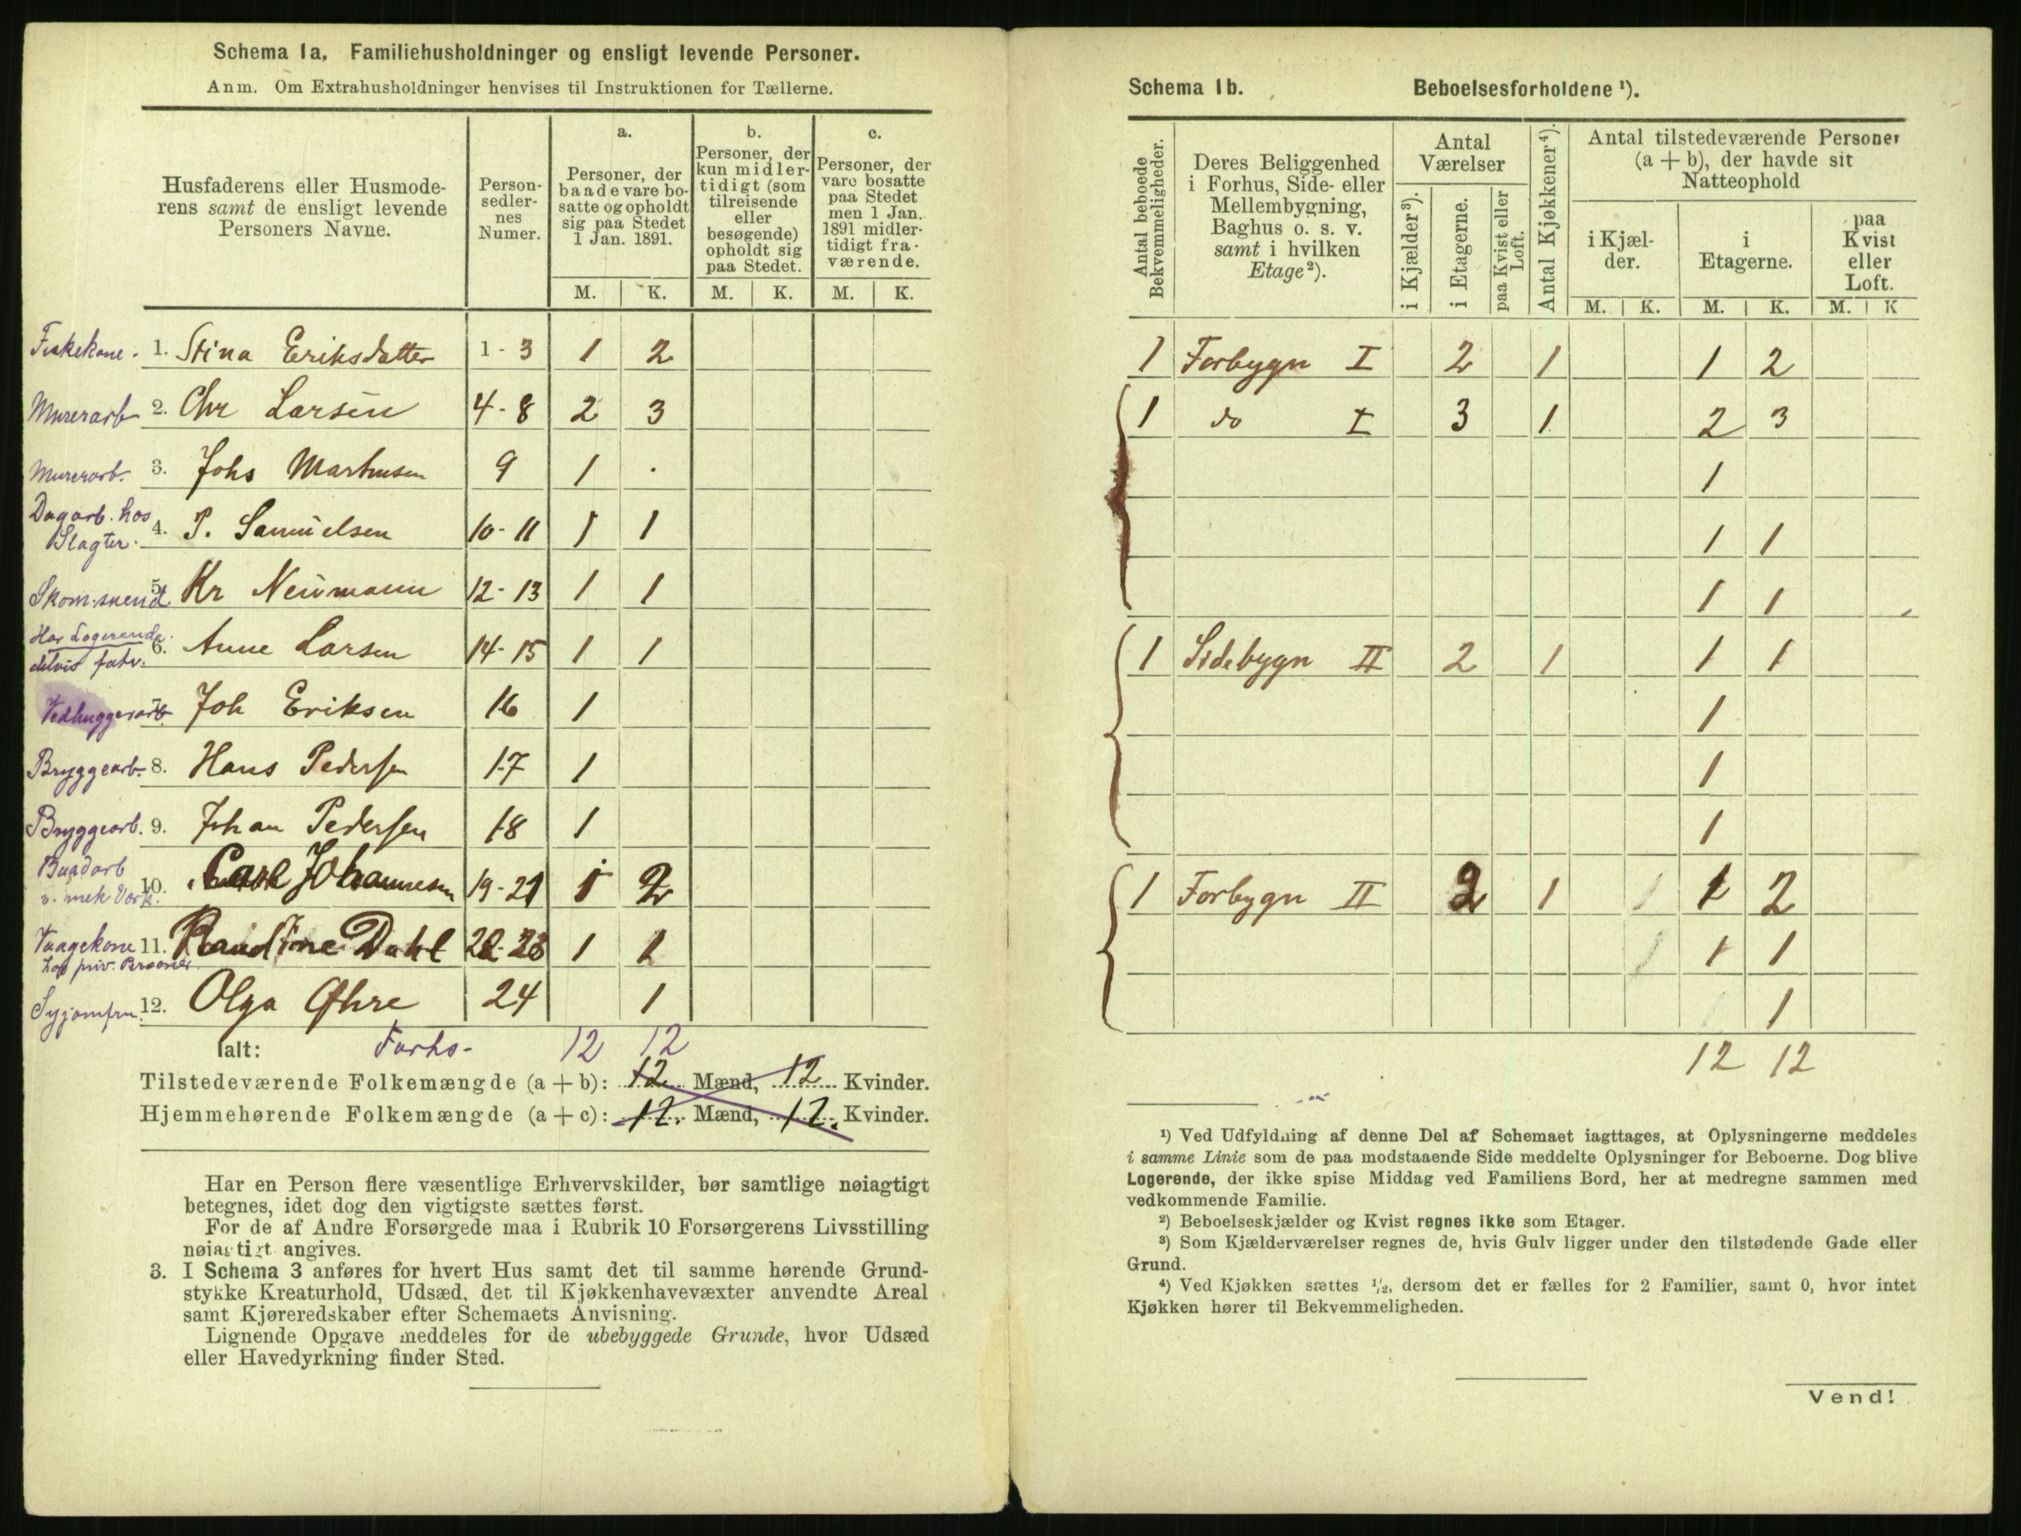 Schema 1a. Familiehusholdninger og ensligt levende Personer.
Anm. Om Extrahusholdninger henvises til Instruktionen for Tællerne.
Husfaderens eller Husmode-
rens samt de ensligt levende
Personers Navne.
Person-
sedler-
nes
Numer.
a.
Personer, der
baade vare bo-
satte og opholdt
sig paa Stedet
1 Jan. 1891.
b.
Personer, der
kun midler-
tidigt (som
tilreisende
eller
besøgende)
opholdt sig
paa Stedet.
c.
Personer, der
vare bosatte
paa Stedet
men 1 Jan.
1891 midler-
tidigt fra-
værende.
M. K. M. K. M. K.
Fiskekone. 1. Stina Eriksdatter 1-3 1 2
Murerarb 2. Chr Larsen 4-8 2 3
Murerarb. 3. Johs Martinsen 9 1 .
Dagarb. hos
Slagter. 4. P. Samuelsen 10-11 1 1
Skom.svend 5. Kr Neumann 12-13 1 1
Har Logerende.
delvis fatv. 6. Anne Larsen 14-15 1 1
Vedhuggerarb 7. Joh Eriksen 16 1
Bryggearb. 8. Hans Pedersen 17 1
Bryggearb. 9. Johan Pedersen 18 1
Baadarb
v. mek Værk. 10. Carl Johannesen 19-21 1 2
Vaagekone
hos priv. Personer. 11. Randine Dahl 22-23 1 1
Syjomfru. 12. Olga Øhre 24 1
Ialt: Forhs- 12 12
Tilstedeværende Folkemængde (a + b): 12 Mænd, 12 Kvinder.
Hjemmehørende Folkemængde (a + c): 12. Mænd, 12. Kvinder.
Har en Person flere væsentlige Erhvervskilder, bør samtlige nøiagtigt
betegnes, idet dog den vigtigste sættes først.
For de af Andre Forsørgede maa i Rubrik 10 Forsørgerens Livsstilling
nøiagtigt angives.
3. I Schema 3 anføres for hvert Hus samt det til samme hørende Grund-
stykke Kreaturhold, Udsæd, det til Kjøkkenhavevæxter anvendte Areal
samt Kjøreredskaber efter Schemaets Anvisning.
Lignende Opgave meddeles for de ubebyggede Grunde, hvor Udsæd
eller Havedyrkning finder Sted.
Schema 1b. Beboelsesforholdene ¹).
Antal beboede
Bekvemmeligheder.
Deres Beliggenhed
i Forhus, Side- eller
Mellembygning,
Baghus o. s. v.
samt i hvilken
Etage ²).
Antal
Værelser
i Kjælder ³).
i Etagerne.
paa Kvist eller
Loft.
Antal Kjøkkener ⁴).
Antal tilstedeværende Personer
(a + b), der havde sit
Natteophold
i Kjæl-
der.
i
Etagerne.
paa
Kvist
eller
Loft.
M. K. M. K. M. K
1 Forbygn I 2 1 1 2
1 do I 3 1 2 3
1
1 1
1 1
1 Sidebygn II 2 1 1 1
1
1
1
1 Forbygn II 2 1 1 2
1 1
1
12 12
¹) Ved Udfyldning af denne Del af Schemaet iagttages, at Oplysningerne meddeles
i samme Linie som de paa modstaaende Side meddelte Oplysninger for Beboerne. Dog blive
Logerende, der ikke spise Middag ved Familiens Bord, her at medregne sammen med
vedkommende Familie.
²) Beboelseskjælder og Kvist regnes ikke som Etager.
³) Som Kjælderværelser regnes de, hvis Gulv ligger under den tilstødende Gade eller
Grund.
⁴) Ved Kjøkken sættes ¹/₂, dersom det er fælles for 2 Familier, samt 0, hvor intet
Kjøkken hører til Bekvemmeligheden.
Vend!